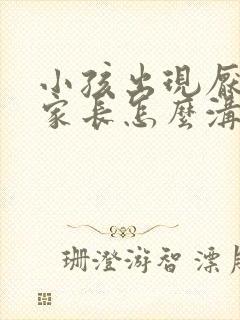 小孩出現厭
家長怎麼溝
珊澄游智漂